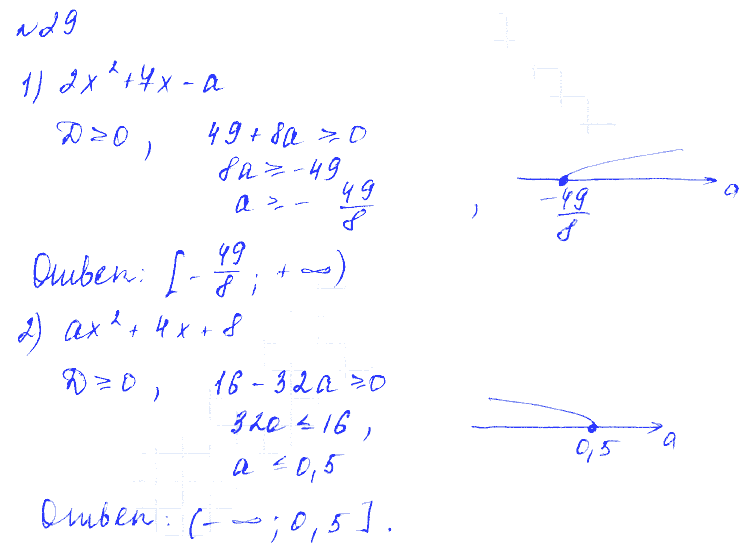 №29
1) 2x² + 7x - a
D ≥ 0, 49 + 8a ≥ 0
8a ≥ -49
a ≥ - 49/8,
-49/8 a
Ответ: [- 49/8; + ∞)
2) ax² + 4x + 8
D ≥ 0, 16 - 32a ≥ 0
32a ≤ 16,
a ≤ 0,5
0,5 a
Ответ: (- ∞; 0,5].